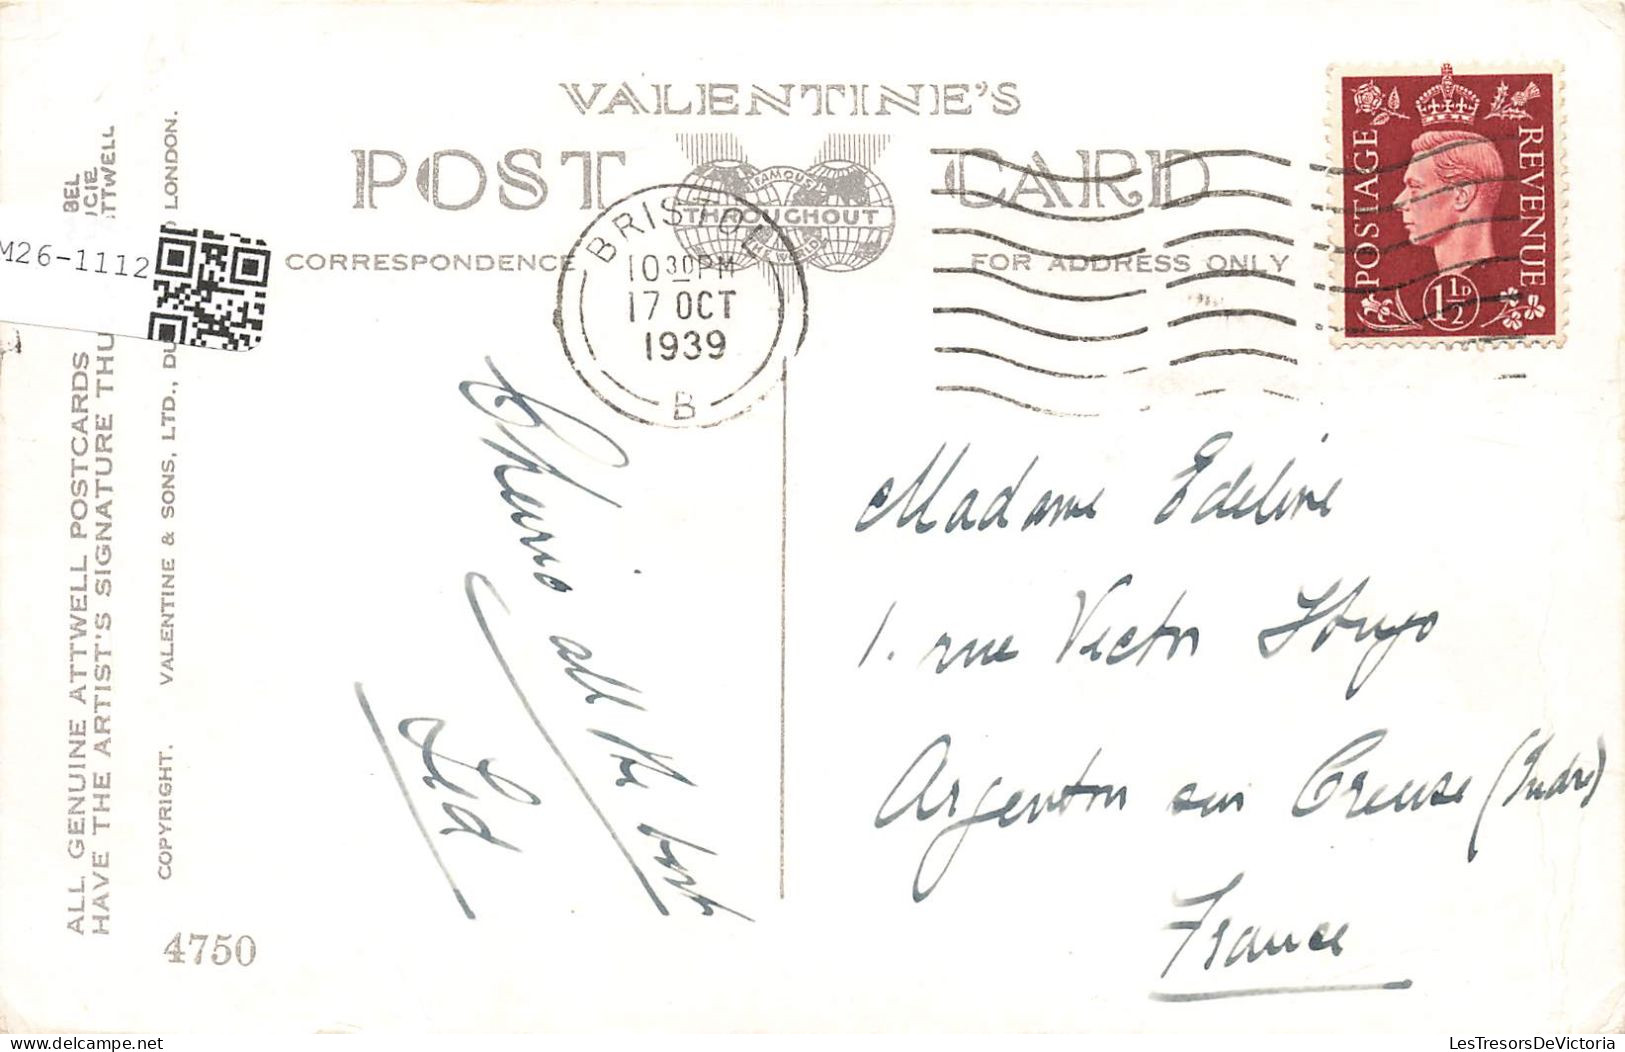 VALENTINE'S
POST CARD
FAMOUS
THROUGHOUT
THE WORLD
CORRESPONDENCE
FOR ADDRESS ONLY
BRISTOL
10 30 PM
17 OCT
1939
B
POSTAGE
REVENUE
1 1/2 D
M26-1112
BEL
CIE
TTWELL
ALL GENUINE ATTWELL POSTCARDS
HAVE THE ARTIST'S SIGNATURE THU
COPYRIGHT. VALENTINE & SONS, LTD., DU LONDON.
4750
Cheerio
all the best
Sid
Madame Edeline
1. rue Victor Hugo
Argenton sur Creuse (Indre)
France
Delcampe.net
LesTresorsDeVictoria